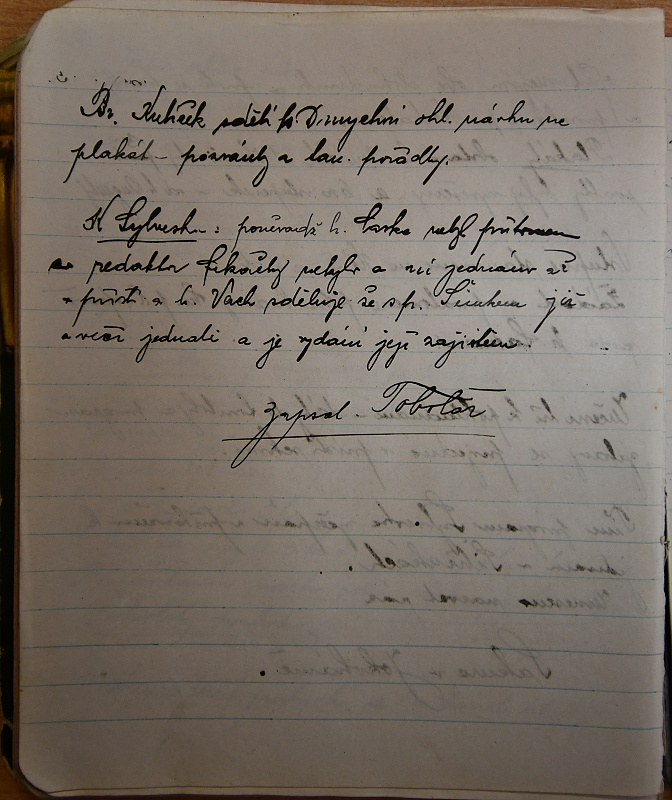 Br. Kubíček sdělí fě Drnychni ohl. návrhu ne
plakát - pozvánky a tan. pořádky.
K Sylvestru: poněvadž b. nebyl přítomen
redaktor nebylo a ní jednáno až
příště a b. Vach sděluje že s p. Šimkem již
jednali a je vydání její zajištěno.
Zapsal Tobolář